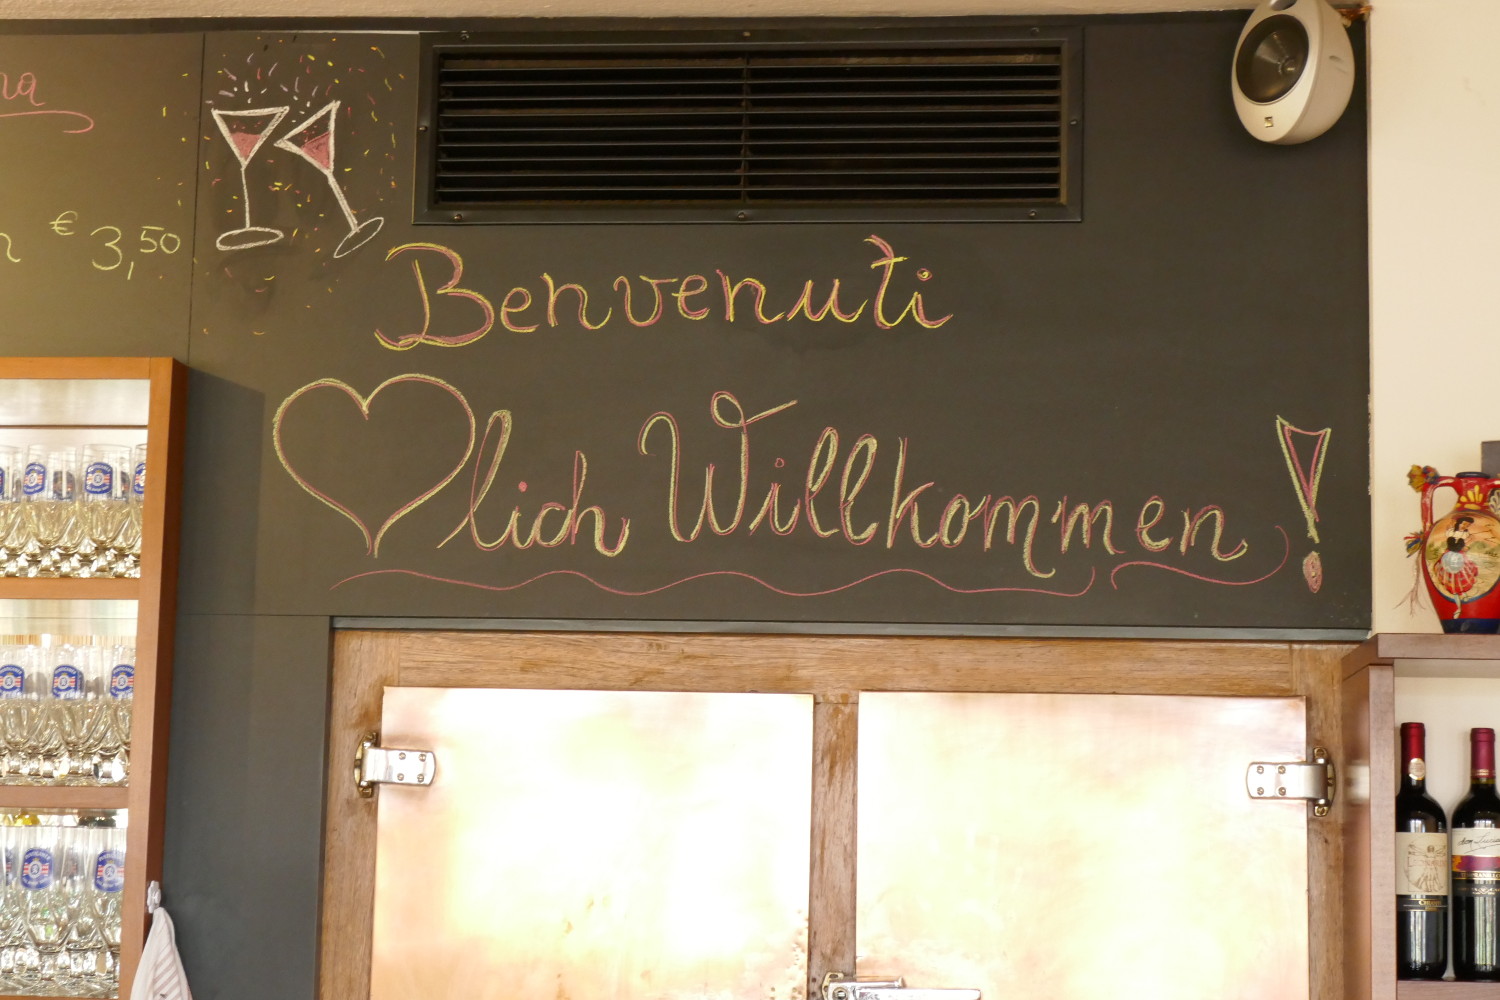 € 3,50
Benvenuti
lich Willkommen!